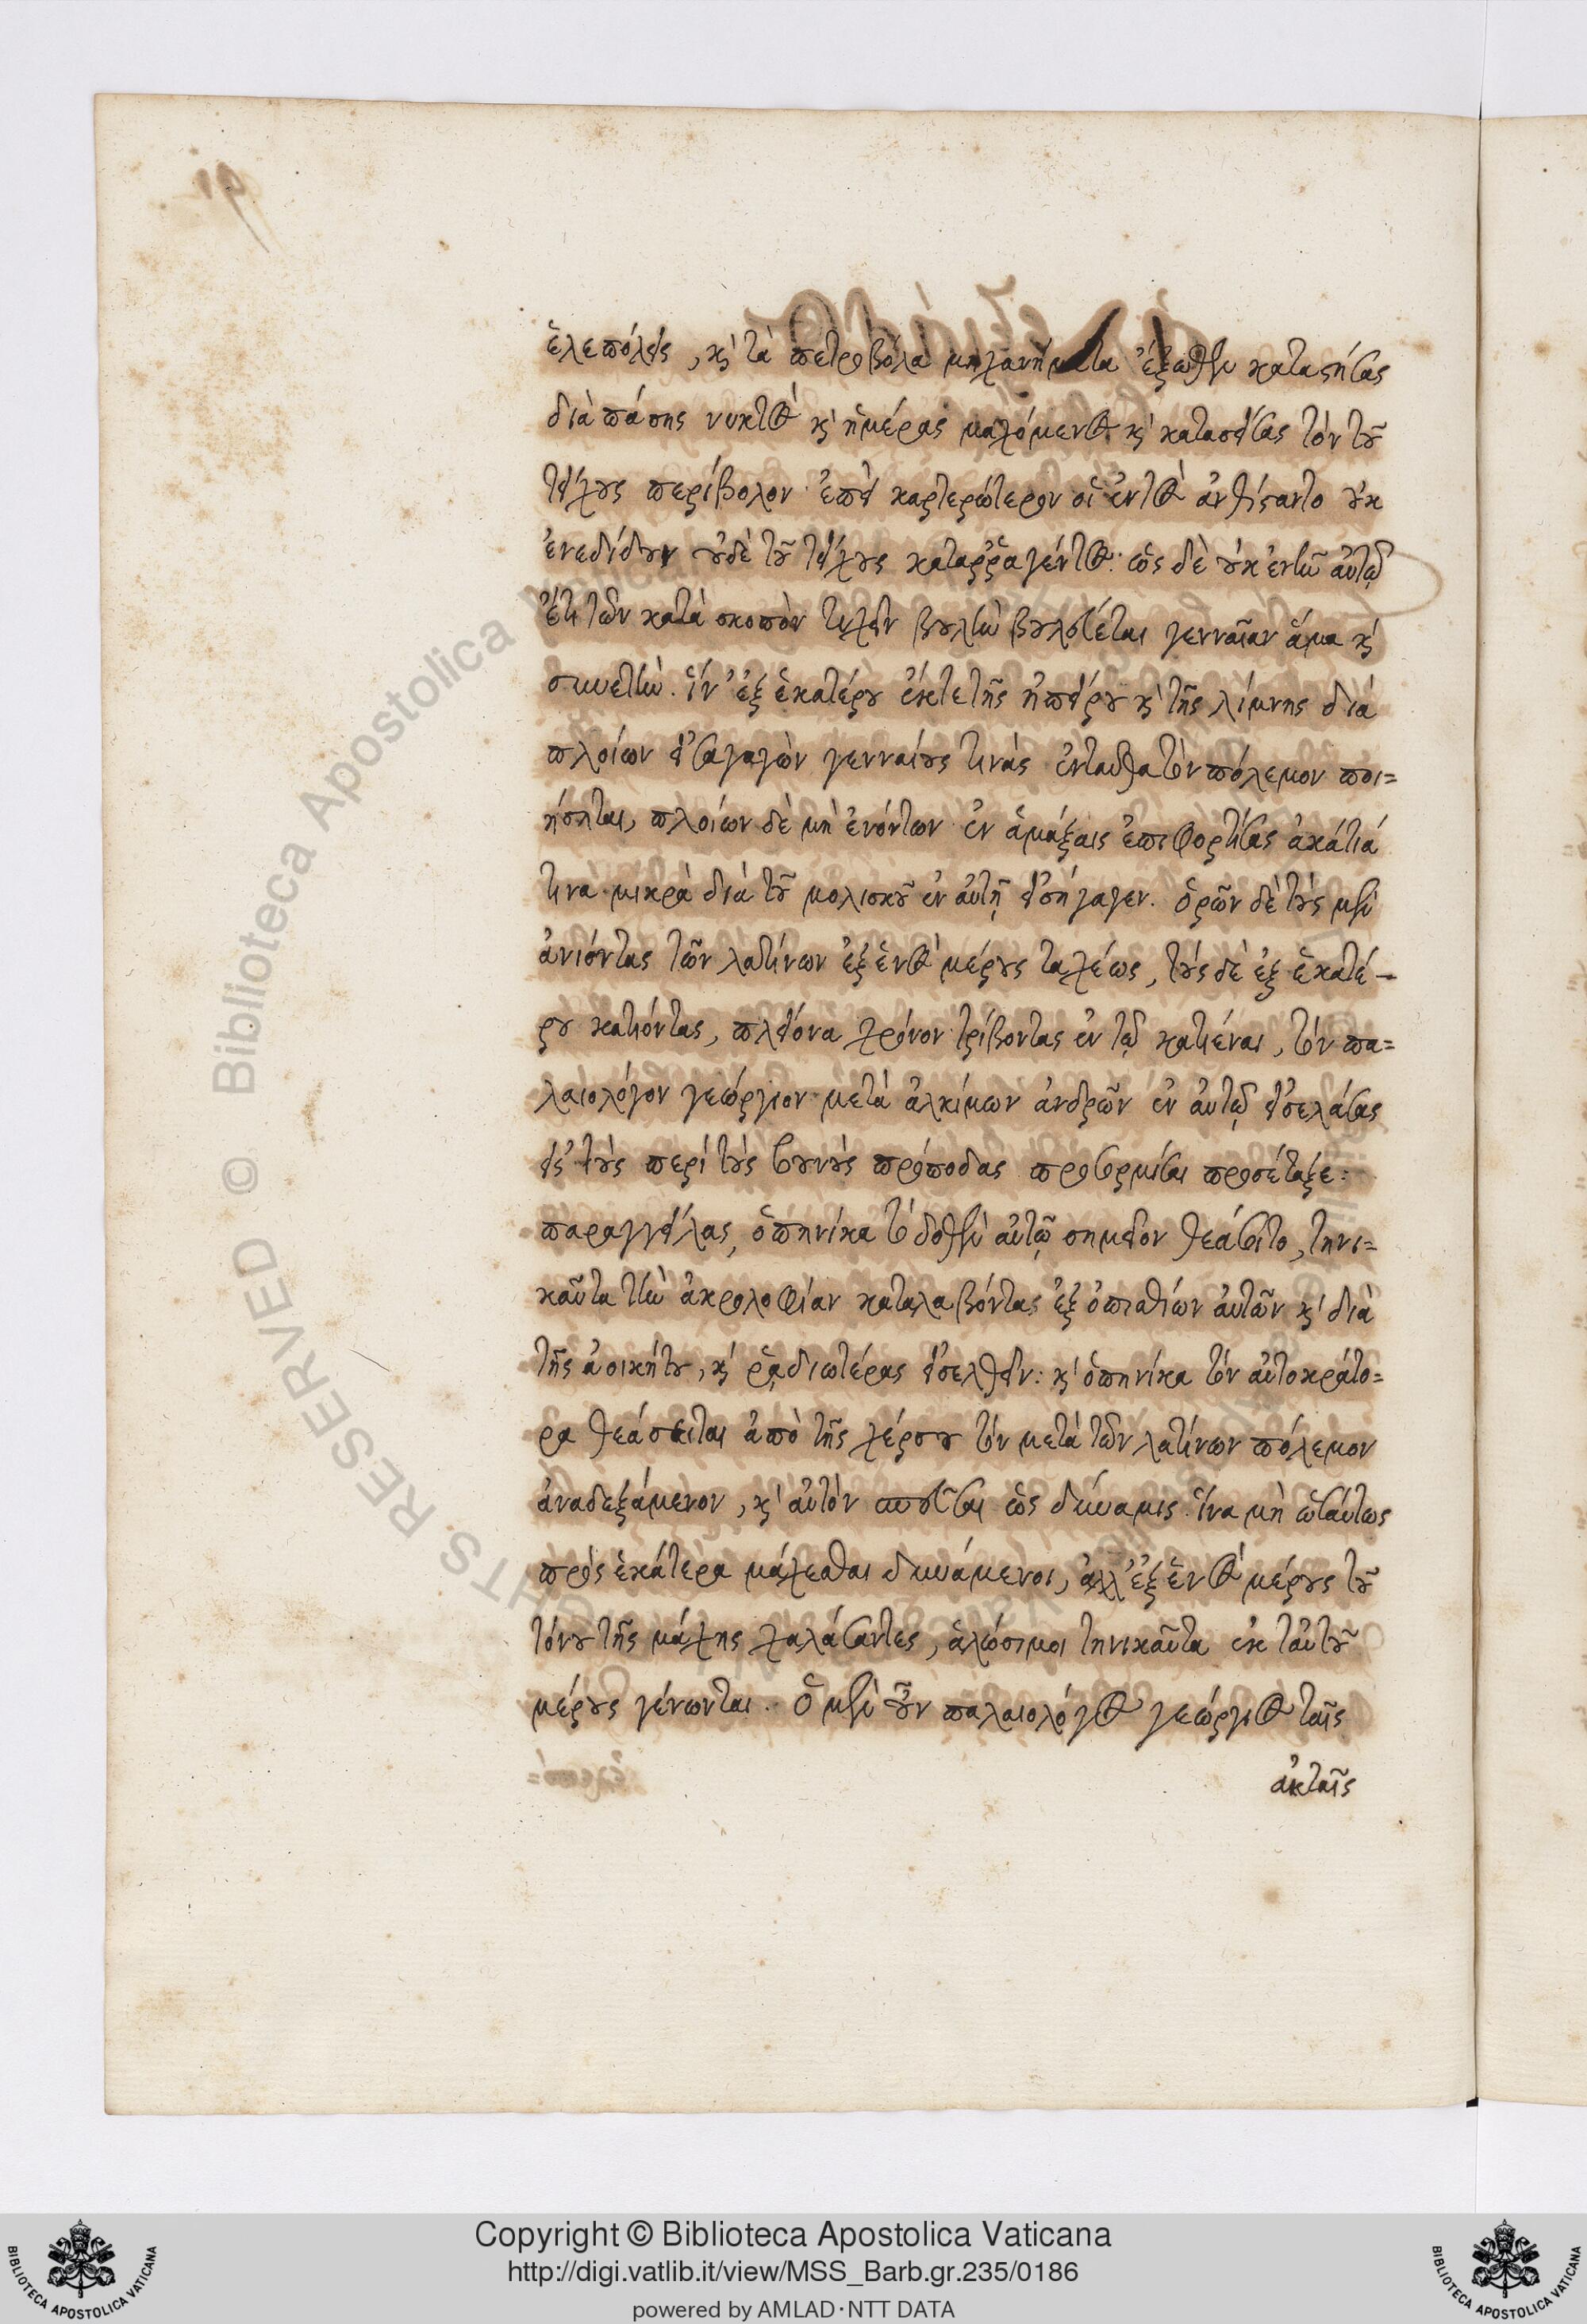 ἑλεπόλεις, κ' τὰ πετροβόλα μηχανήματα ἔξωθεν καταστήσας
διὰ πάσης νυκτὸς κ' ἡμέρας μαχόμενος κ' κατασείσας τὸν τοῦ
τείχους περίβολον· ἐπεὶ καρτερώτερον οἱ ἐντὸς ἀνθίσαντο οὐκ
ἐνεδίδουν οὐδὲ τοῦ τείχους καταῤῥαγέντος· ὡς δὲ οὐκ ἐνῆν αὐτῷ
ἔτι τῶν κατὰ σκοπὸν τυχεῖν βουλὴν βουλεύεται γενναίαν ἅμα κ'
συνετήν. ἵν' ἐξ ἑκατέρου ἔκτε τῆς ἠπείρου κ' τῆς λίμνης διά
πλοίων εἰσαγαγὼν γενναίους τινὰς ἐνταῦθα τὸν πόλεμον ποι=
ήσηται, πλοίων δὲ μὴ ἐνόντων ἐν ἁμάξαις ἐπιφορτίσας ἀκάτιά
τινα μικρὰ διὰ τοῦ μολισκοῦ ἐν αὐτῇ εἰσήγαγεν. ὁρῶν δὲ τοὺς μὲν
ἀνιόντας τῶν λατίνων ἐξ ἑνὸς μέρους ταχέως, τοὺς δὲ ἐξ ἑκατέ-
ρου κατιόντας, πλείονα χρόνον τρίβοντας ἐν τῷ κατιέναι, τὸν πα=
λαιολόγον γεώργιον μετὰ ἀλκίμων ἀνδρῶν ἐν αὐτῷ εἰσελάσας
εἰς τοὺς περὶ τοὺς βουνοὺς πρόποδας προσορμίσαι προσέταξε:
παραγγείλας, ὁπηνίκα τὸ δοθὲν αὐτῷ σημεῖον θεάσοιτο, τηνι=
καῦτα τὴν ἀκρολοφίαν καταλαβόντας ἐξ ὀπισθίων αὐτῶν κ' διὰ
τῆς ἀοικήτου, κ' ῥᾳδιωτέρας εἰσελθεῖν: κ' ὁπηνίκα τὸν αὐτοκράτο=
ρα θεάσειται ἀπὸ τῆς χέρσου τὸν μετὰ τῶν λατίνων πόλεμον
ἀναδεξάμενον, κ' αὐτὸν σπεῦσαι ὡς δύναμις ἵνα μὴ ὡσαύτως
πρὸς ἑκάτερα μάχεσθαι δυνάμενοι, ἀλλ' ἐξ ἑνὸς μέρους τοῦ
τόνου τῆς μάχης χαλάσαντες, ἁλώσιμοι τηνικαῦτα ἐκ ταὐτοῦ
μέρους γένωνται. Ὁ μὲν οὖν παλαιολόγος γεώργιος ταῖς
ἀκταῖς
Copyright © Biblioteca Apostolica Vaticana
http://digi.vatlib.it/view/MSS_Barb.gr.235/0186
powered by AMLAD·NTT DATA